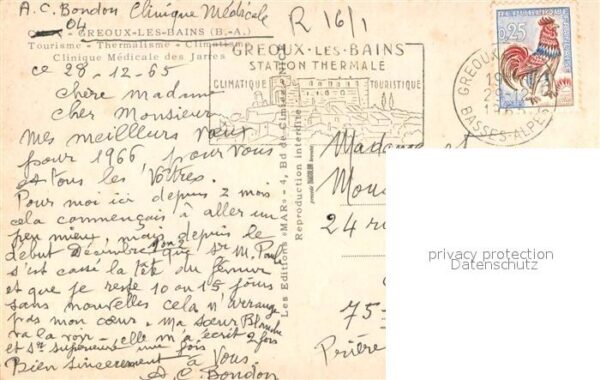 A.C. Bondon Clinique Médicale
04 - GREOUX-LES-BAINS (B.-A.)
Tourisme - Thermalisme - Climatisme
Clinique Médicale des Jarres
R 16/1
GREOUX-LES-BAINS
STATION THERMALE
CLIMATIQUE TOURISTIQUE
0,25
GREOUX
BASSES-ALPES
ce 28-12-65
chère Madame
cher Monsieur
Mes meilleurs vœux
pour 1966 pour vous
et tous les Vôtres.
Pour moi ici depuis 2 mois
cela commençais à aller un
peu mieux, mais depuis le
début Décembre que Sr M. Paule
s'est cassé la tête du fémur
et que je reste 10 ou 15 jours
sans nouvelles cela n'arrange
pas mon cœur. Ma sœur Blanche
va la voir - elle m'a écrit 2 fois
et Sr supérieure une fois
Bien sincèrement à Vous.
A.C. Bondon
Les Editions «MAR» - 4, Bd de Cimiez - Nice
Reproduction interdite
Madame et
24 ru
75-
Prière
privacy protection
Datenschutz